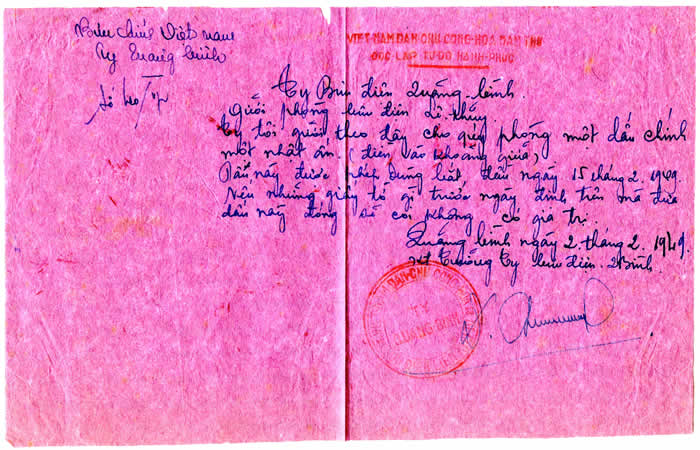 Bưu chính Việt nam
Ty Quảng bình
Số
VIỆT-NAM DÂN CHỦ CỘNG-HÒA DÂN THỨ
ĐỘC LẬP TỰ DO HẠNH-PHÚC
Ty Bưu điện Quảng-bình.
gửi phòng bưu điện Lê thủy.
Ty tôi gửi theo đây cho quý phòng một dấu chính
một nhật ấn. (điền vào khoảng giữa)
Dấu này được phép dùng bắt đầu ngày 15 tháng 2. 1949.
Nếu những giấy tờ gì trước ngày định trên mà đưa
dấu này đóng sẽ coi không có giá trị.
Quảng bình ngày 2. tháng 2. 1949.
Trưởng Ty bưu điện Q Bình.
QUANG BINH